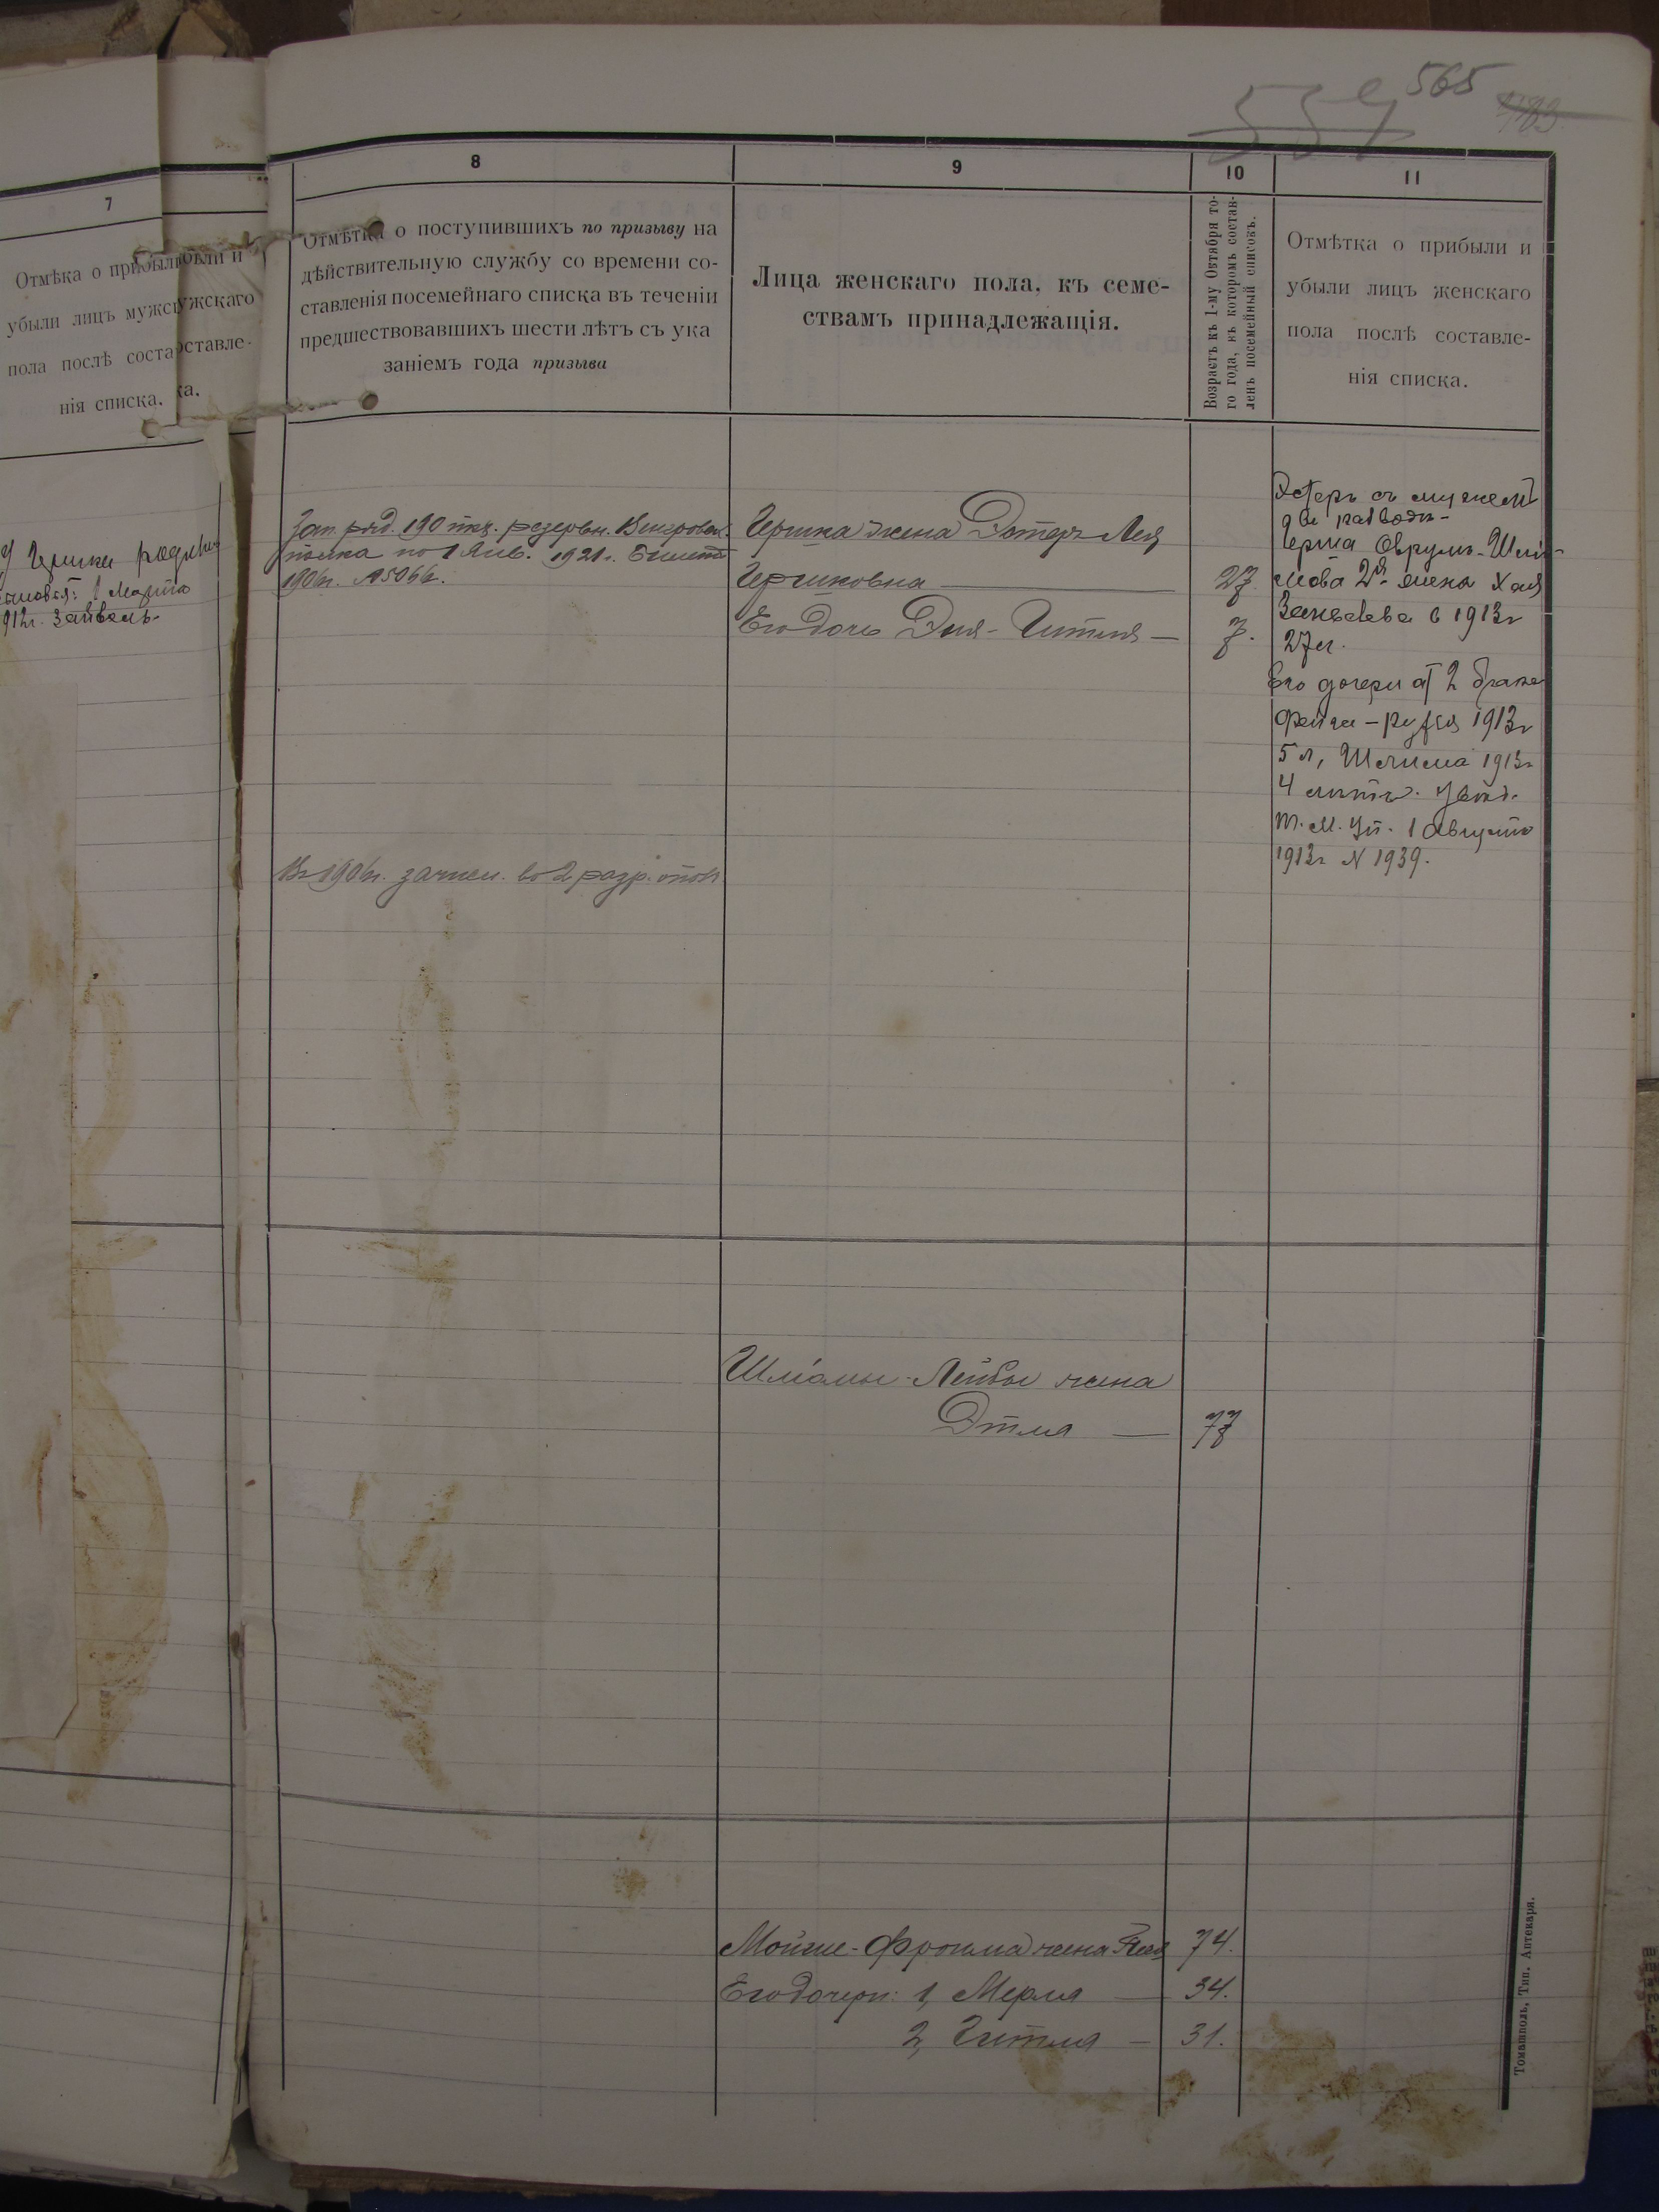 565
559
7
Отмѣтка о прибыли и
убыли лицъ мужскаго
пола послѣ составле-
нія списка.
У Гершки родился
1 Марта
8
Отмѣтка о поступившихъ по призыву на
дѣйствительную службу со времени со-
ставленія посемейнаго списка въ теченіи
предшествовавшихъ шести лѣтъ съ ука
заніемъ года призыва
Зап. ряд. 190 пѣх. резервн. Венгровск.
полка по 1 Янв. 1921 г. Билетъ
1904г.
Въ 1904г. зачисл. во 2 разр. опол.
9
Лица женскаго пола, къ семе-
ствамъ принадлежащія.
Гершка жена Эстеръ-Лея
Гершковна
Его дочь Эня-Гитля
Шлёмы-Лейбы жена
Этля
Мойше-Фроима жена
Его дочери: 1, Мерля
2, Гитля
10
Возрастъ къ 1-му Октября то-
го года, въ которомъ состав-
ленъ посемейный списокъ.
27.
7.
77
74.
34.
31.
11
Отмѣтка о прибыли и
убыли лицъ женскаго
пола послѣ составле-
нія списка.
Эстеръ съ мужемъ
разводъ-
Герша Оврумъ-Шлё-
мова 2я жена Хая
в 1913г
27 л.
Его дочери от 2 брака
Фейга-Рухля 1913г
5 л, 1913г
4
Т. М. Уп. 1 Августа
1913г N 1939.
Томашполь, Тип. Аптекаря.